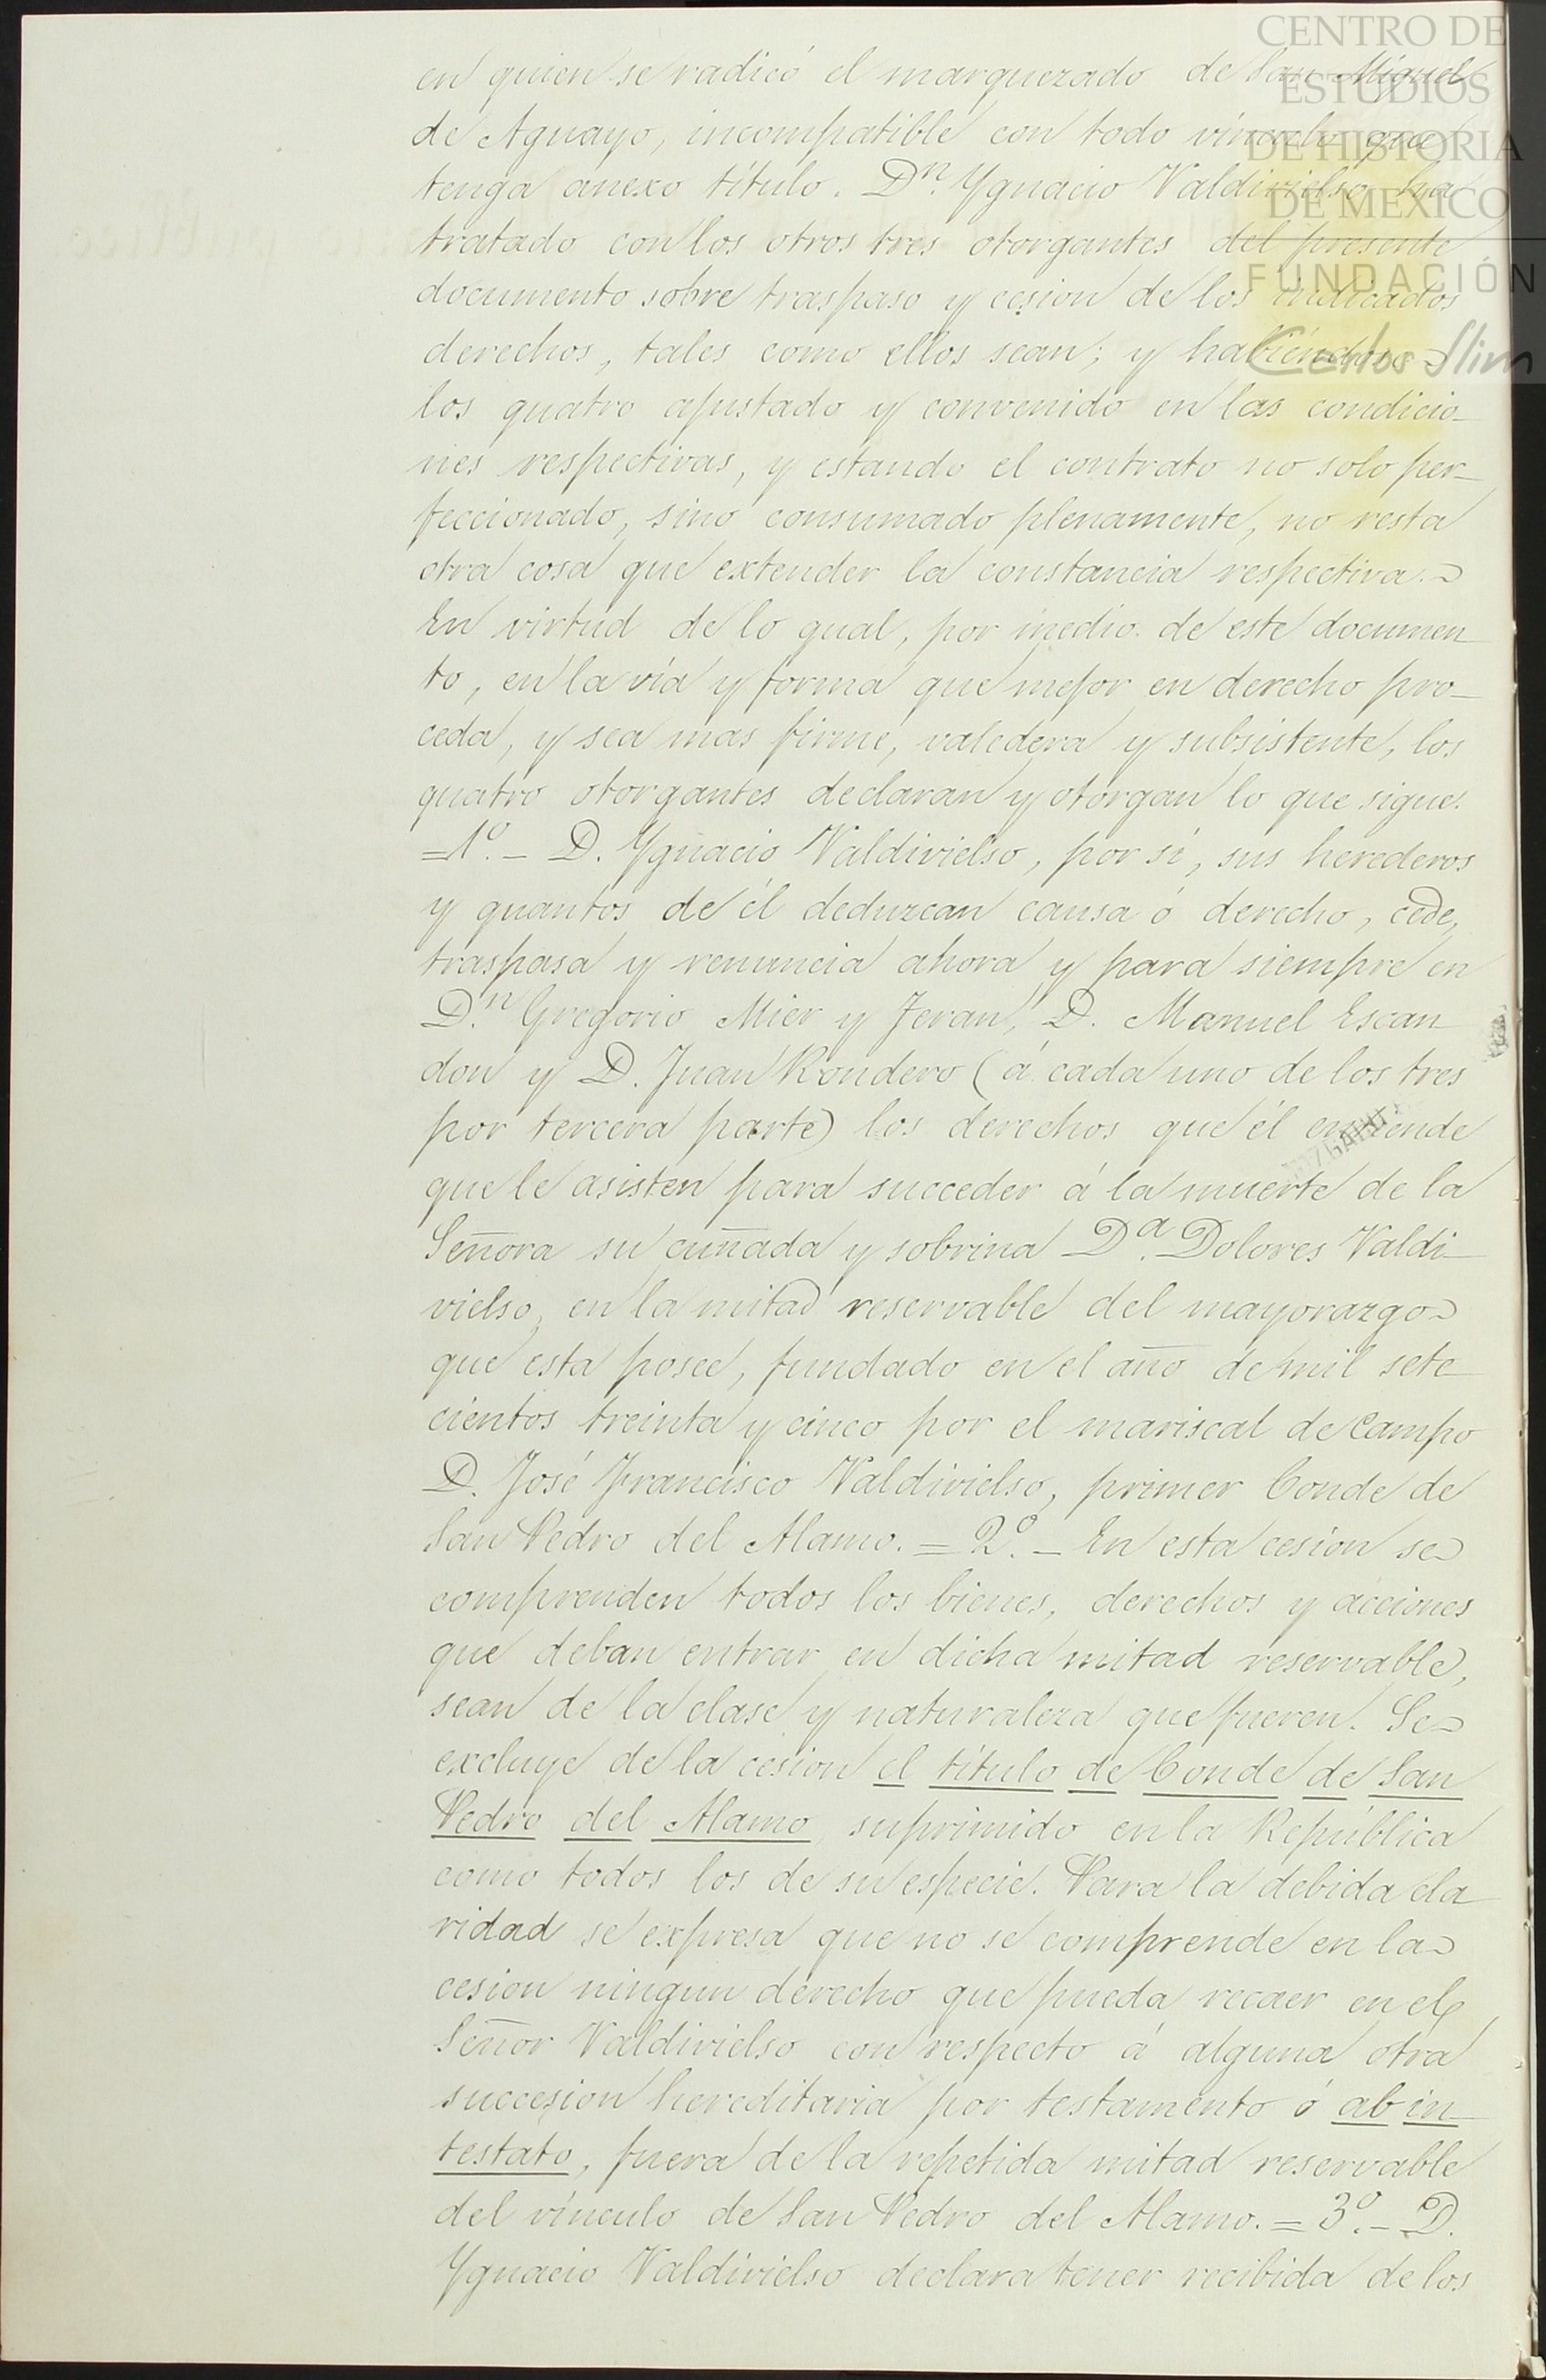 CENTRO DE
ESTUDIOS
DE HISTORIA
DE MEXICO
FUNDACIÓN
Carlos Slim
en quien se radicó el marquezado de San Miguel
de Aguayo, incompatible con todo vínculo que
tenga anexo título. Dn. Ygnacio Valdivielso ha
tratado con los otros tres otorgantes del presente
documento sobre traspaso y cesion de los indicados
derechos, tales como ellos sean; y habiéndose
los quatro ajustado y convenido en las condicio-
nes respectivas, y estando el contrato no solo per-
feccionado, sino consumado plenamente, no resta
otra cosa que extender la constancia respectiva.
En virtud de lo qual, por medio de este documen-
to, en la vía y forma que mejor en derecho pro-
ceda, y sea mas firme, valedera y subsistente, los
quatro otorgantes declaran y otorgan lo que sigue.
=1º.- D. Ygnacio Valdivielso, por sí, sus herederos
y quantos de él deduzcan causa ó derecho, cede,
traspasa y renuncia ahora y para siempre en
D.n Gregorio Mier y Teran, D. Manuel Escan-
don y D. Juan Rondero (á cada uno de los tres
por tercera parte) los derechos que él entiende
que le asisten para succeder á la muerte de la
Señora su cuñada y sobrina Da. Dolores Valdi-
vielso, en la mitad reservable del mayorazgo
que esta posee, fundado en el año de mil sete-
cientos treinta y cinco por el mariscal de Campo
D. José Francisco Valdivielso, primer Conde de
San Pedro del Alamo. = 2º.- En esta cesion se
comprenden todos los bienes, derechos y acciones
que deban entrar en dicha mitad reservable,
sean de la clase y naturaleza que fueren. Se
excluye de la cesion el título de Conde de San
Pedro del Alamo suprimido en la República
como todos los de su especie. Para la debida cla-
ridad se expresa que no se comprende en la
cesion ningun derecho que pueda recaer en el
Señor Valdivielso con respecto á alguna otra
succesion hereditaria por testamento ó ab in-
testato, fuera de la repetida mitad reservable
del vínculo de San Pedro del Alamo. = 3º.- D.
Ygnacio Valdivielso declara tener recibida de los